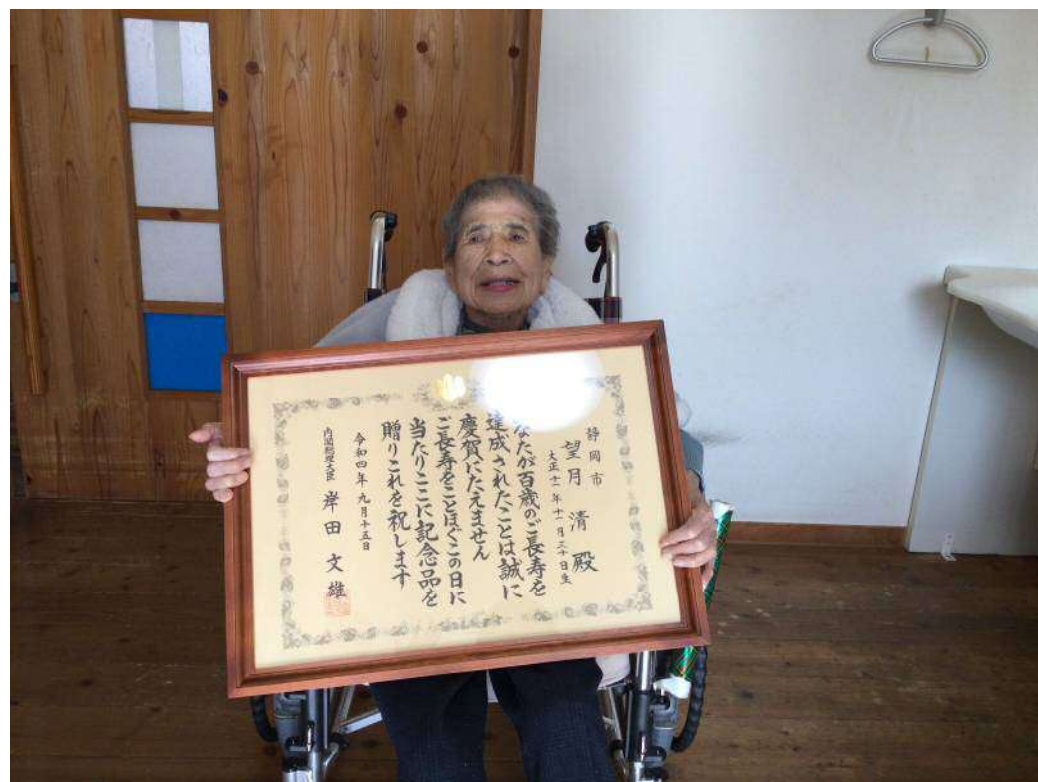 静岡市
望月 清 殿
大正十一年十一月三十日生
なたが百歳のご長寿を
達成されたことは誠に
慶賀にたえません
ご長寿をことほぐこの日に
当たりここに記念品を
贈りこれを祝します
令和四年九月十五日
内閣総理大臣 岸田文雄